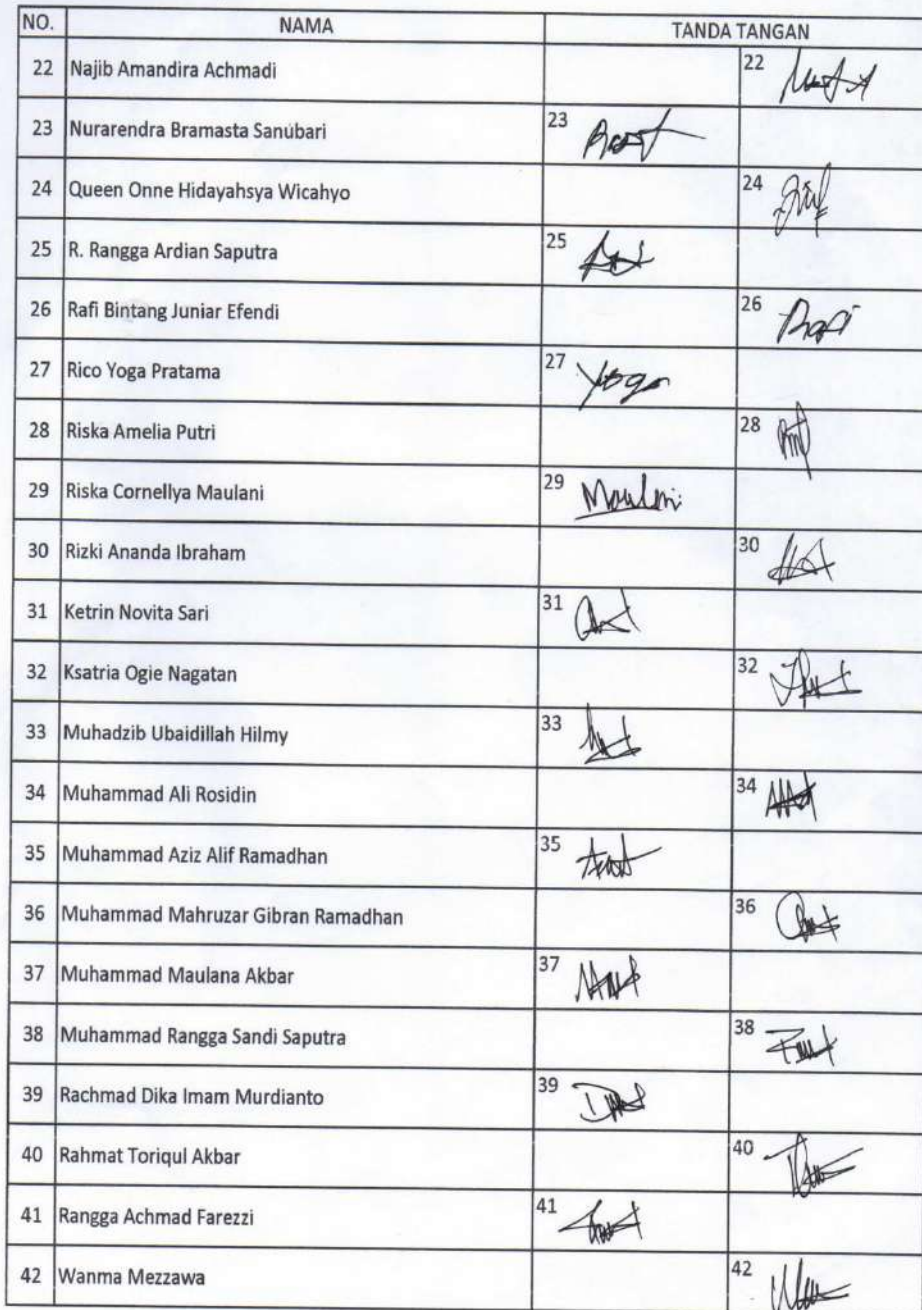 NO. NAMA TANDA TANGAN
22 Najib Amandira Achmadi 22
23 Nurarendra Bramasta Sanubari 23
24 Queen Onne Hidayahsya Wicahyo 24
25 R. Rangga Ardian Saputra 25
26 Rafi Bintang Juniar Efendi 26 Rafi
27 Rico Yoga Pratama 27 Yoga
28 Riska Amelia Putri 28
29 Riska Cornellya Maulani 29 Maulani
30 Rizki Ananda Ibraham 30
31 Ketrin Novita Sari 31
32 Ksatria Ogie Nagatan 32
33 Muhadzib Ubaidillah Hilmy 33
34 Muhammad Ali Rosidin 34
35 Muhammad Aziz Alif Ramadhan 35
36 Muhammad Mahruzar Gibran Ramadhan 36
37 Muhammad Maulana Akbar 37
38 Muhammad Rangga Sandi Saputra 38
39 Rachmad Dika Imam Murdianto 39
40 Rahmat Toriqul Akbar 40
41 Rangga Achmad Farezzi 41
42 Wanma Mezzawa 42